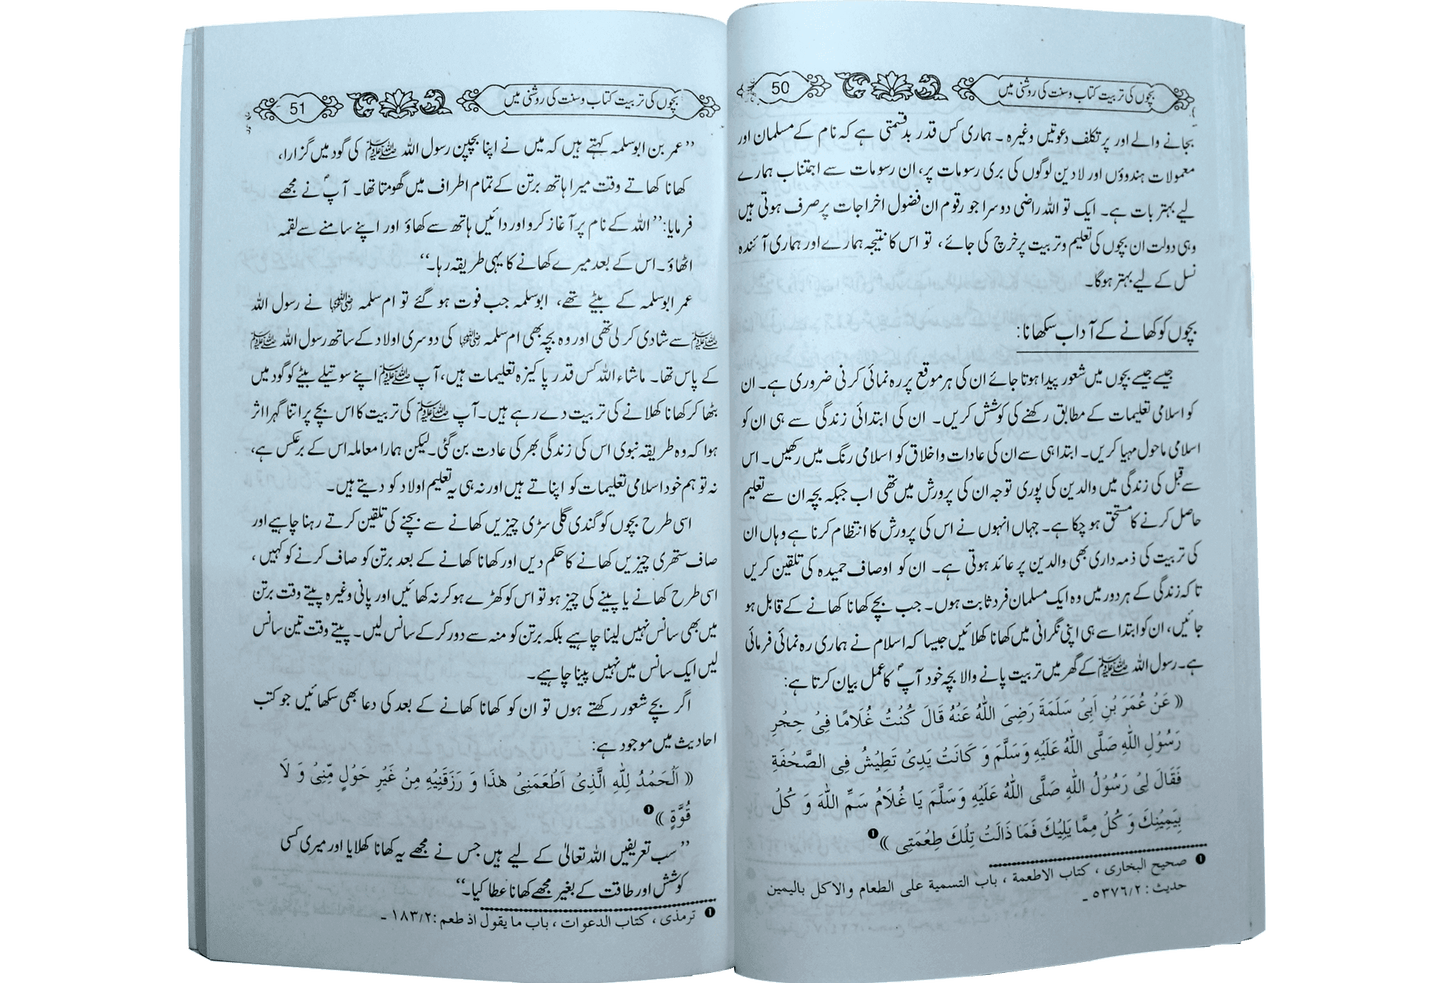 بچوں کی تربیت کتاب و سنت کی روشنی میں
50
بجانے والے اور پر تکلف دعوتیں وغیرہ۔ ہماری کس قدر بدقسمتی ہے کہ نام کے مسلمان اور
معمولات ہندوؤں اور لادین لوگوں کی بری رسومات پر، ان رسومات سے اجتناب ہمارے
لیے بہتر بات ہے۔ ایک تو اللہ راضی دوسرا جو رقوم ان فضول اخراجات پر صرف ہوتی ہیں
وہی دولت ان بچوں کی تعلیم و تربیت پر خرچ کی جائے، تو اس کا نتیجہ ہمارے اور ہماری آئندہ
نسل کے لیے بہتر ہوگا۔
بچوں کو کھانے کے آداب سکھانا:
جیسے جیسے بچوں میں شعور پیدا ہوتا جائے ان کی ہر موقع پر رہ نمائی کرنی ضروری ہے۔ ان
کو اسلامی تعلیمات کے مطابق رکھنے کی کوشش کریں۔ ان کی ابتدائی زندگی سے ہی ان کو
اسلامی ماحول مہیا کریں۔ ابتدا ہی سے ان کی عادات و اخلاق کو اسلامی رنگ میں رکھیں۔ اس
سے قبل کی زندگی میں والدین کی پوری توجہ ان کی پرورش میں تھی اب جبکہ بچہ ان سے تعلیم
حاصل کرنے کا مستحق ہو چکا ہے۔ جہاں انہوں نے اس کی پرورش کا انتظام کرنا ہے وہاں ان
کی تربیت کی ذمہ داری بھی والدین پر عائد ہوتی ہے۔ ان کو اوصاف حمیدہ کی تلقین کریں
تا کہ زندگی کے ہر دور میں وہ ایک مسلمان فرد ثابت ہوں۔ جب بچے کھانا کھانے کے قابل ہو
جائیں، ان کو ابتدا سے ہی اپنی نگرانی میں کھانا کھلائیں جیسا کہ اسلام نے ہماری رہ نمائی فرمائی
ہے۔ رسول اللہ ﷺ کے گھر میں تربیت پانے والا بچہ خود آپؐ کا عمل بیان کرتا ہے:
« عَنْ عُمَرَ بْنِ اَبِی سَلَمَةَ رَضِیَ اللّٰهُ عَنْهُ قَالَ کُنْتُ غُلَامًا فِیْ حِجْرِ
رَسُوْلِ اللّٰهِ صَلَّی اللّٰهُ عَلَیْهِ وَسَلَّمَ وَ کَانَتْ یَدِیْ تَطِیْشُ فِی الصَّحْفَةِ
فَقَالَ لِیْ رَسُوْلُ اللّٰهِ صَلَّی اللّٰهُ عَلَیْهِ وَسَلَّمَ یَا غُلَامُ سَمِّ اللّٰهَ وَ کُلْ
بِیَمِیْنِكَ وَ کُلْ مِمَّا یَلِیْكَ فَمَا ذَالَتْ تِلْكَ طِعْمَتِی » ❶
❶ صحیح البخاری، کتاب الاطعمة، باب التسمیة علی الطعام والاکل بالیمین
حدیث: ٥٣٧٦/٢۔
بچوں کی تربیت کتاب و سنت کی روشنی میں
51
’’عمر بن ابوسلمہ کہتے ہیں کہ میں نے اپنا بچپن رسول اللہ ﷺ کی گود میں گزارا،
کھانا کھاتے وقت میرا ہاتھ برتن کے تمام اطراف میں گھومتا تھا۔ آپؐ نے مجھے
فرمایا: ’’اللہ کے نام پر آغاز کرو اور دائیں ہاتھ سے کھاؤ اور اپنے سامنے سے لقمہ
اٹھاؤ۔ اس کے بعد میرے کھانے کا یہی طریقہ رہا۔‘‘
عمر ابوسلمہ کے بیٹے تھے، ابوسلمہ جب فوت ہو گئے تو ام سلمہ رضی اللہ عنہا نے رسول اللہ
ﷺ سے شادی کر لی تھی اور وہ بچہ بھی ام سلمہ رضی اللہ عنہا کی دوسری اولاد کے ساتھ رسول اللہ ﷺ
کے پاس تھا۔ ماشاء اللہ کس قدر پاکیزہ تعلیمات ہیں، آپ ﷺ اپنے سوتیلے بیٹے کو گود میں
بٹھا کر کھانا کھلانے کی تربیت دے رہے ہیں۔ آپ ﷺ کی تربیت کا اس بچے پر اتنا گہرا اثر
ہوا کہ وہ طریقہ نبوی اس کی زندگی بھر کی عادت بن گئی۔ لیکن ہمارا معاملہ اس کے برعکس ہے،
نہ تو ہم خود اسلامی تعلیمات کو اپناتے ہیں اور نہ ہی یہ تعلیم اولاد کو دیتے ہیں۔
اسی طرح بچوں کو گندی گلی سڑی چیزیں کھانے سے بچنے کی تلقین کرتے رہنا چاہیے اور
صاف ستھری چیزیں کھانے کا حکم دیں اور کھانا کھانے کے بعد برتن کو صاف کرنے کو کہیں،
اسی طرح کھانے یا پینے کی چیز ہو تو اس کو کھڑے ہو کر نہ کھائیں اور پانی وغیرہ پیتے وقت برتن
میں بھی سانس نہیں لینا چاہیے بلکہ برتن کو منہ سے دور کر کے سانس لیں۔ پیتے وقت تین سانس
لیں ایک سانس میں نہیں پینا چاہیے۔
اگر بچے شعور رکھتے ہوں تو ان کو کھانا کھانے کے بعد کی دعا بھی سکھائیں جو کتب
احادیث میں موجود ہے:
« اَلْحَمْدُ لِلّٰهِ الَّذِیْ اَطْعَمَنِیْ هٰذَا وَ رَزَقَنِیْهِ مِنْ غَیْرِ حَوْلٍ مِّنِّیْ وَ لَا
قُوَّةٍ » ❶
’’سب تعریفیں اللہ تعالیٰ کے لیے ہیں جس نے مجھے یہ کھانا کھلایا اور میری کسی
کوشش اور طاقت کے بغیر مجھے کھانا عطا کیا۔‘‘
❶ ترمذی، کتاب الدعوات، باب ما یقول اذ طعم: ١٨٣/٢۔